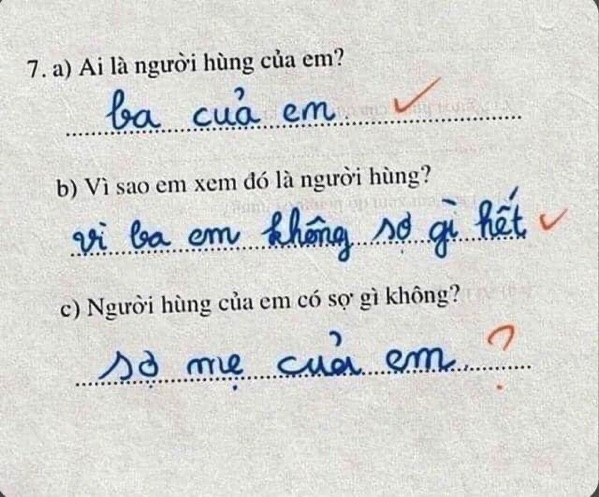 7. a) Ai là người hùng của em?
ba của em
b) Vì sao em xem đó là người hùng?
vì ba em không sợ gì hết
c) Người hùng của em có sợ gì không?
sợ mẹ của em ?